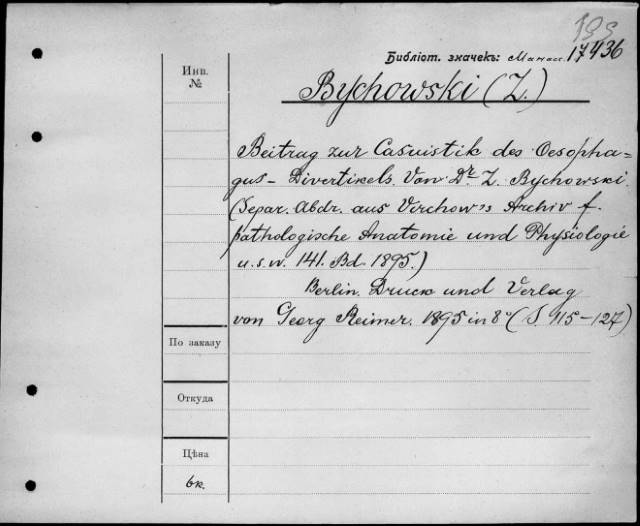 195
Библіот. значекъ: Манас. 17436
Инв.
№
Bychowski (Z.)
Beitrag zur Casuistik des Oesopha=
gus - Divertikels. Von Dr. Z. Bychowski.
(Separ. Abdr. aus Virchow's Archiv f.
pathologische Anatomie und Physiologie
u.s.w. 141. Bd. 1895.)
Berlin. Druck und Verlag
von Georg Reimer. 1895 in 8º (S. 115-127)
По заказу
Откуда
Цѣна
6к.